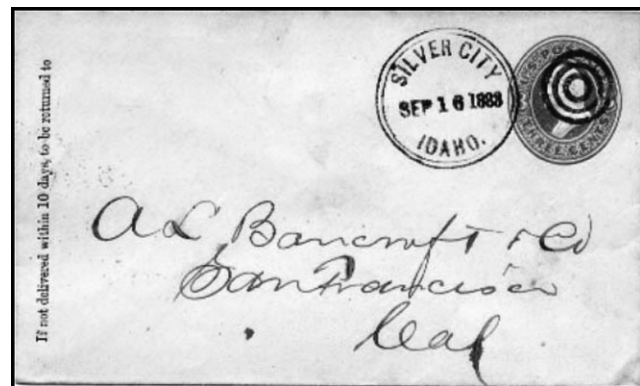 If not delivered within 10 days, to be returned to
SILVER CITY
SEP 16 1883
IDAHO.
U.S. POSTAGE
THREE CENTS
A L Bancroft & Co
San Francisco
Cal